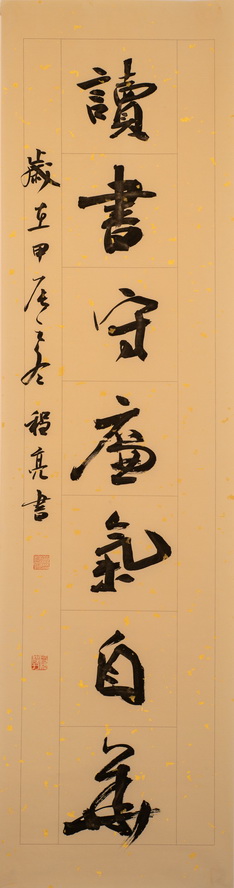 讀書守廉氣自華
歲在甲辰之冬 程亮書